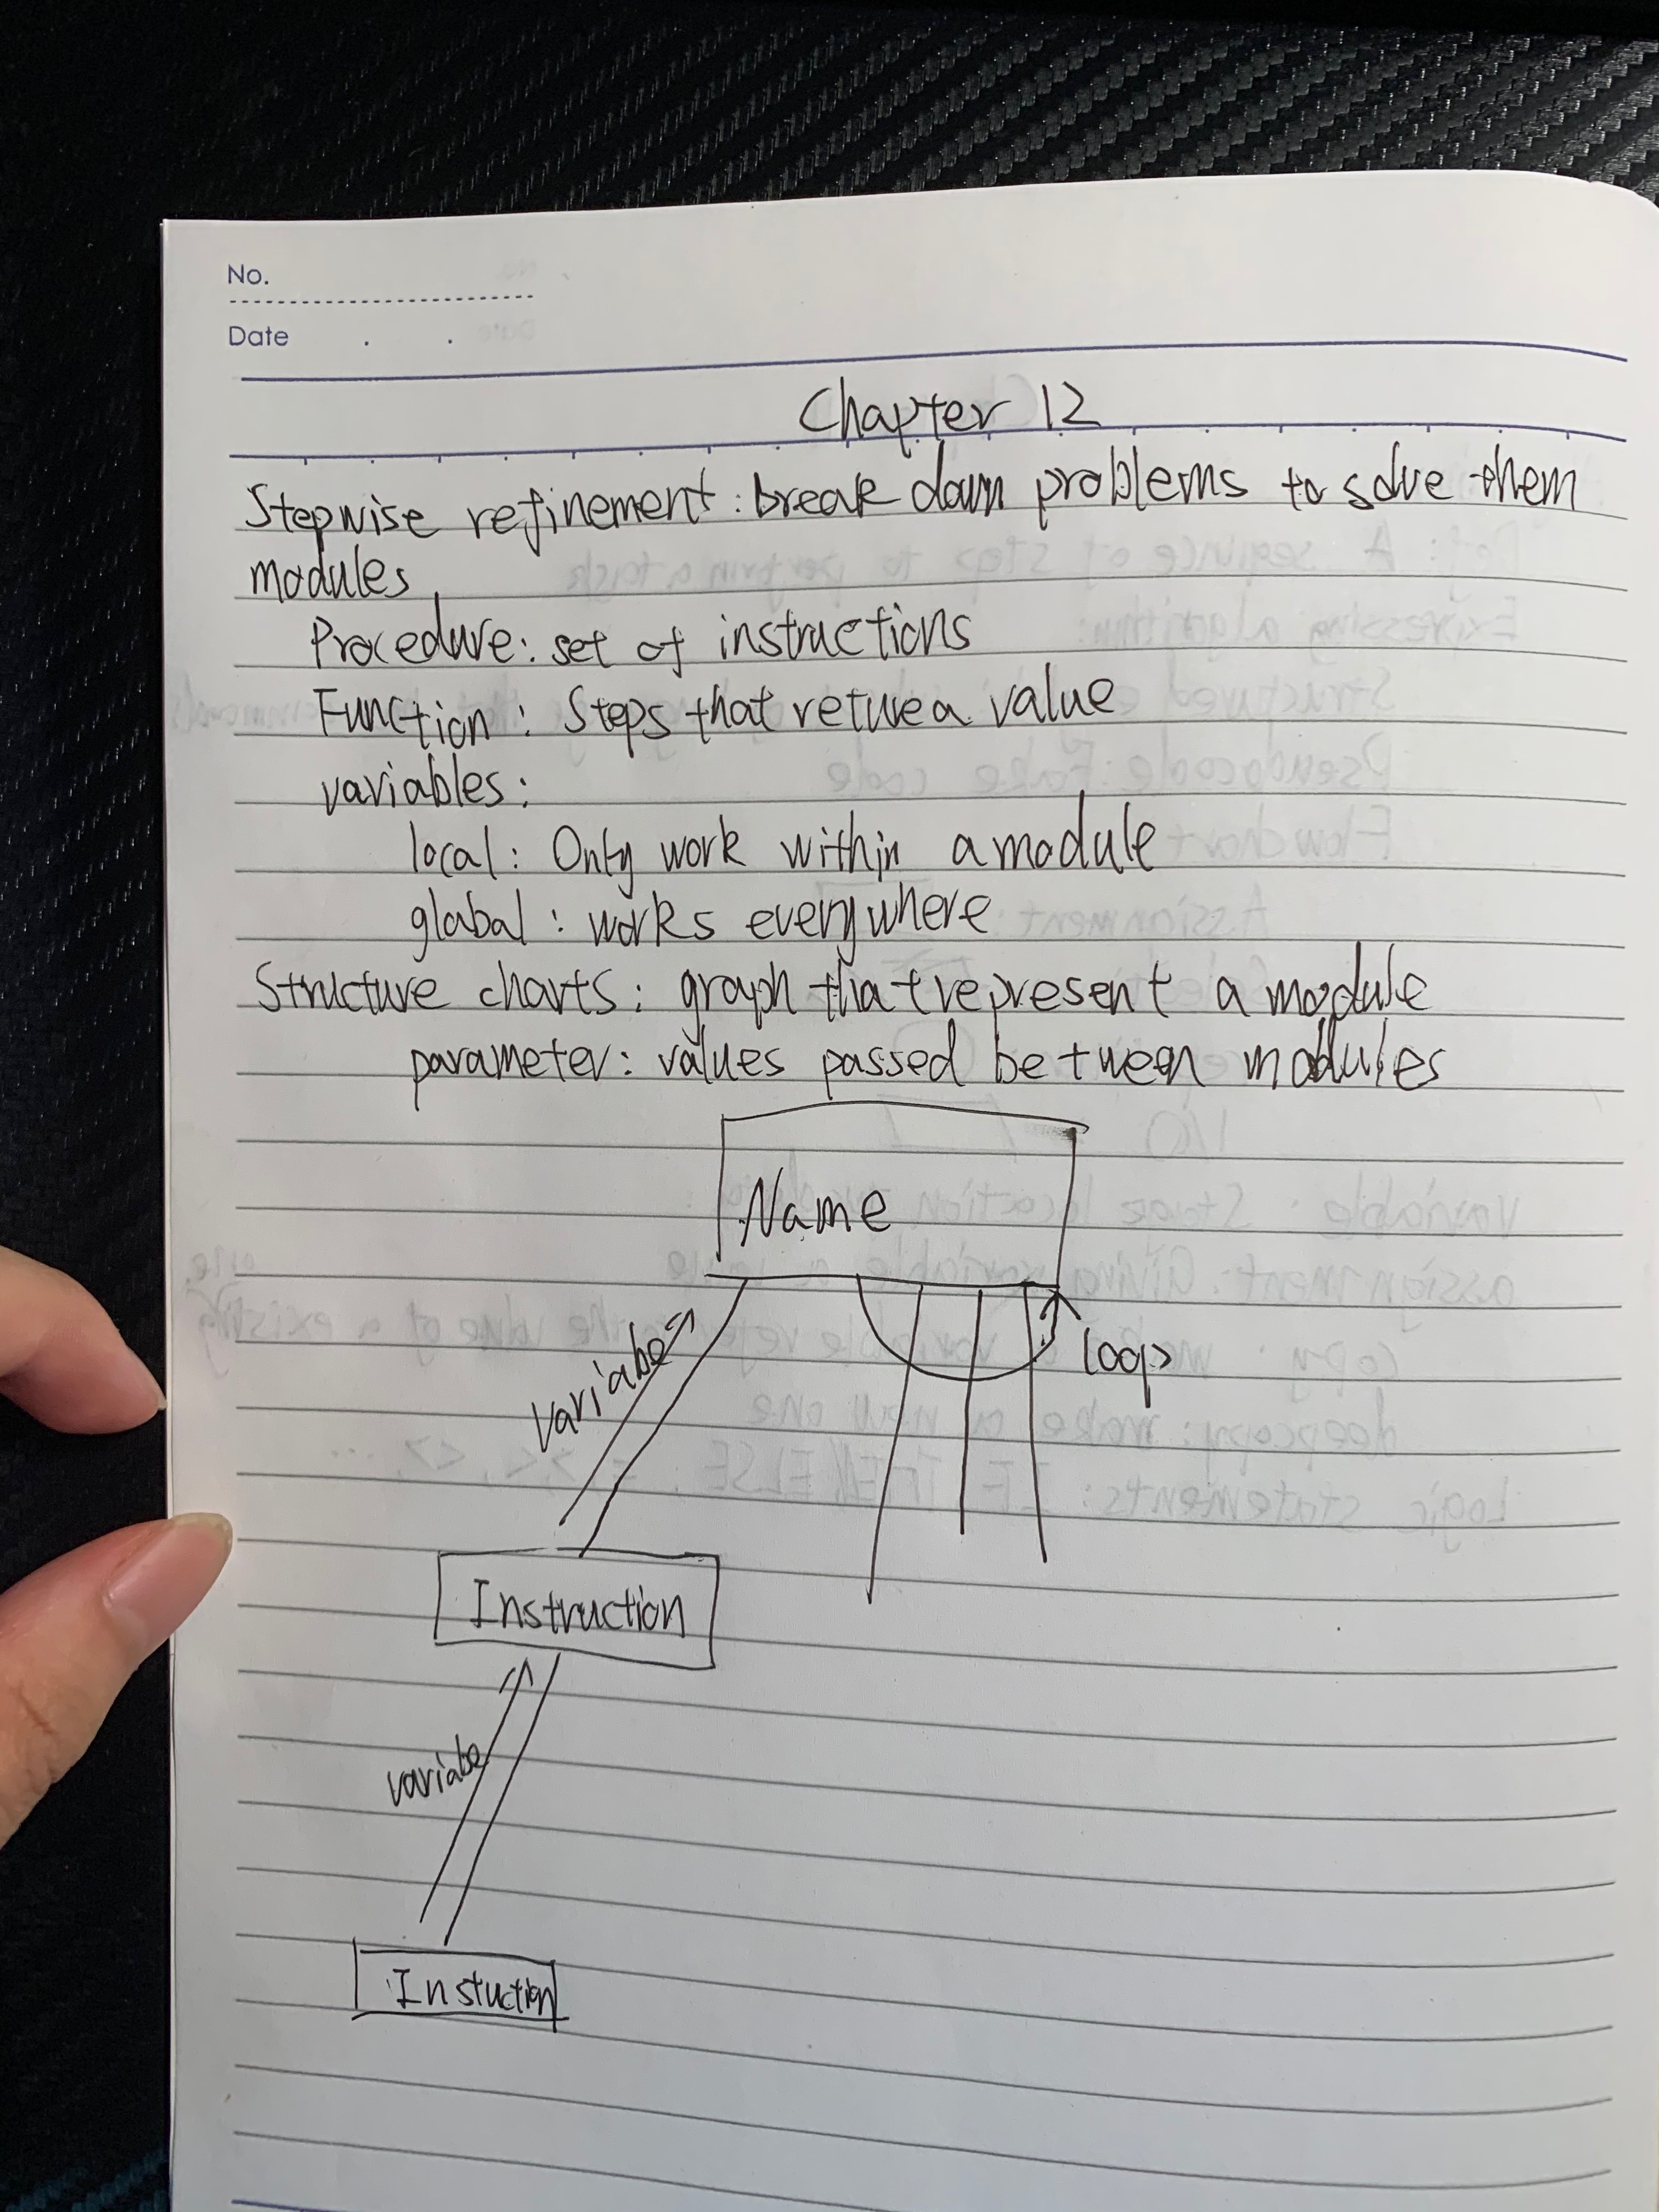 No.
Date . .
Chapter 12
Stepwise refinement: break down problems to solve them
modules
Procedure: set of instructions
Function: Steps that returea value
variables:
local: Only work within a module
global: works everywhere
Structure charts: graph that represent a module
parameter: values passed between modules
Name
variabe
loop
Instruction
variabe
Instuction